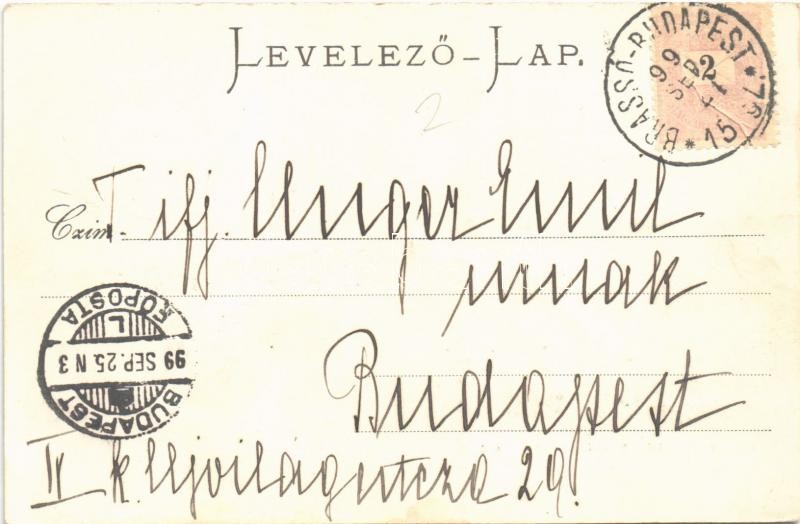 LEVELEZŐ-LAP.
BRASSÓ-BUDAPEST * 78 * 15
99 SEP
2
2
Czim. T. ifj. Unger Emil
urnak
Budapest
IV k. Ujvilágutcza 29.
BUDAPEST
99 SEP. 25. N 3
FŐPOSTA